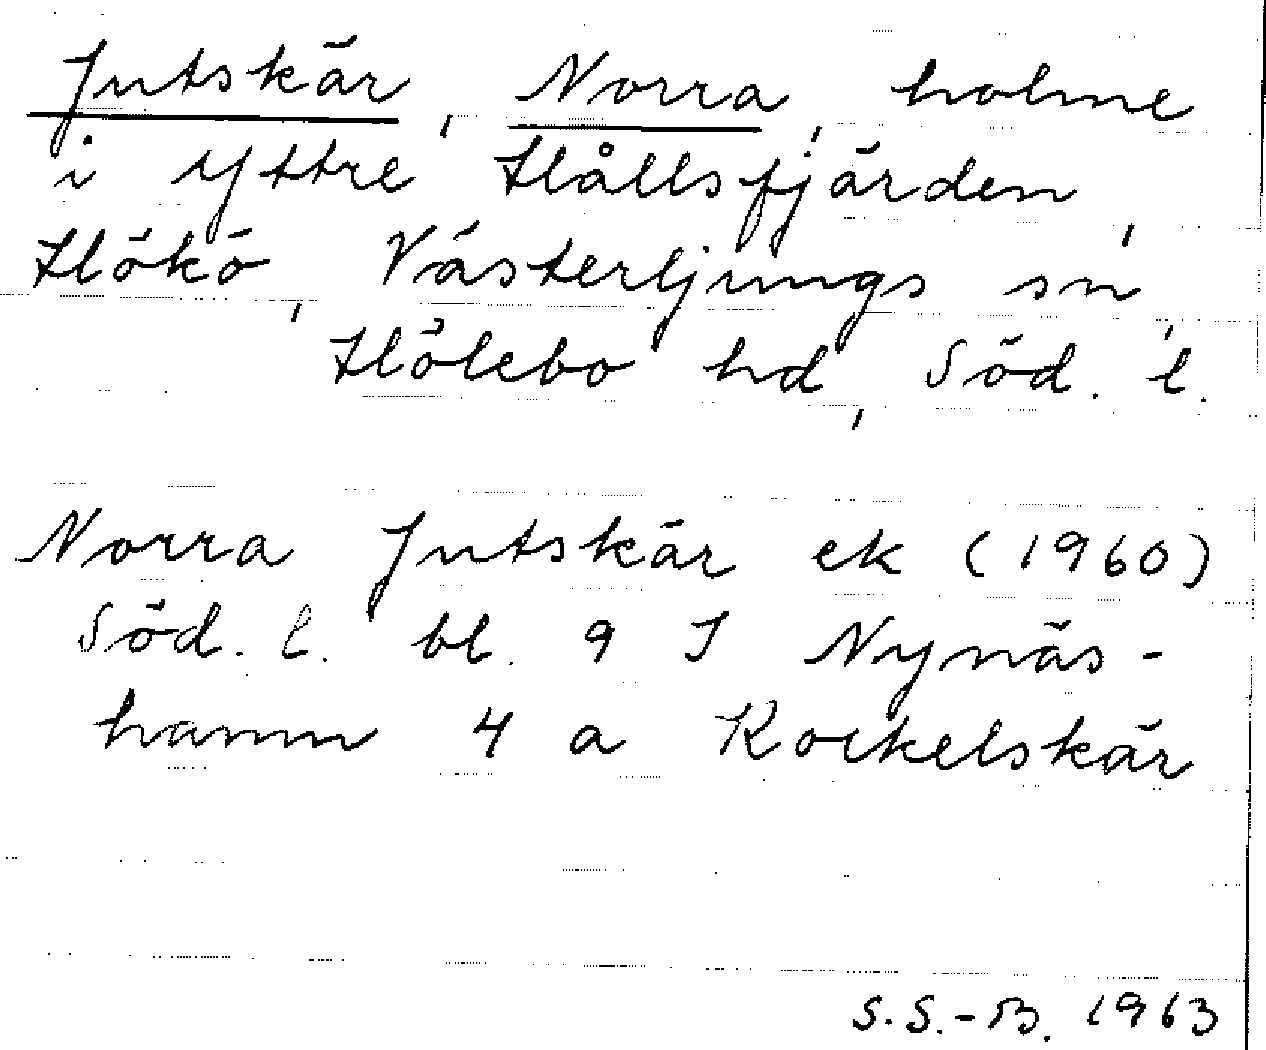 Jutskär, Norra, holme
i Yttre Hållsfjärden,
Hökö, Västerljungs sn,
Hölebo hd, Söd. l.
Norra Jutskär ek (1960)
Söd. l. bl. 9 J Nynäs-
hamn 4 a Rockelskär
S.S.-B. 1963